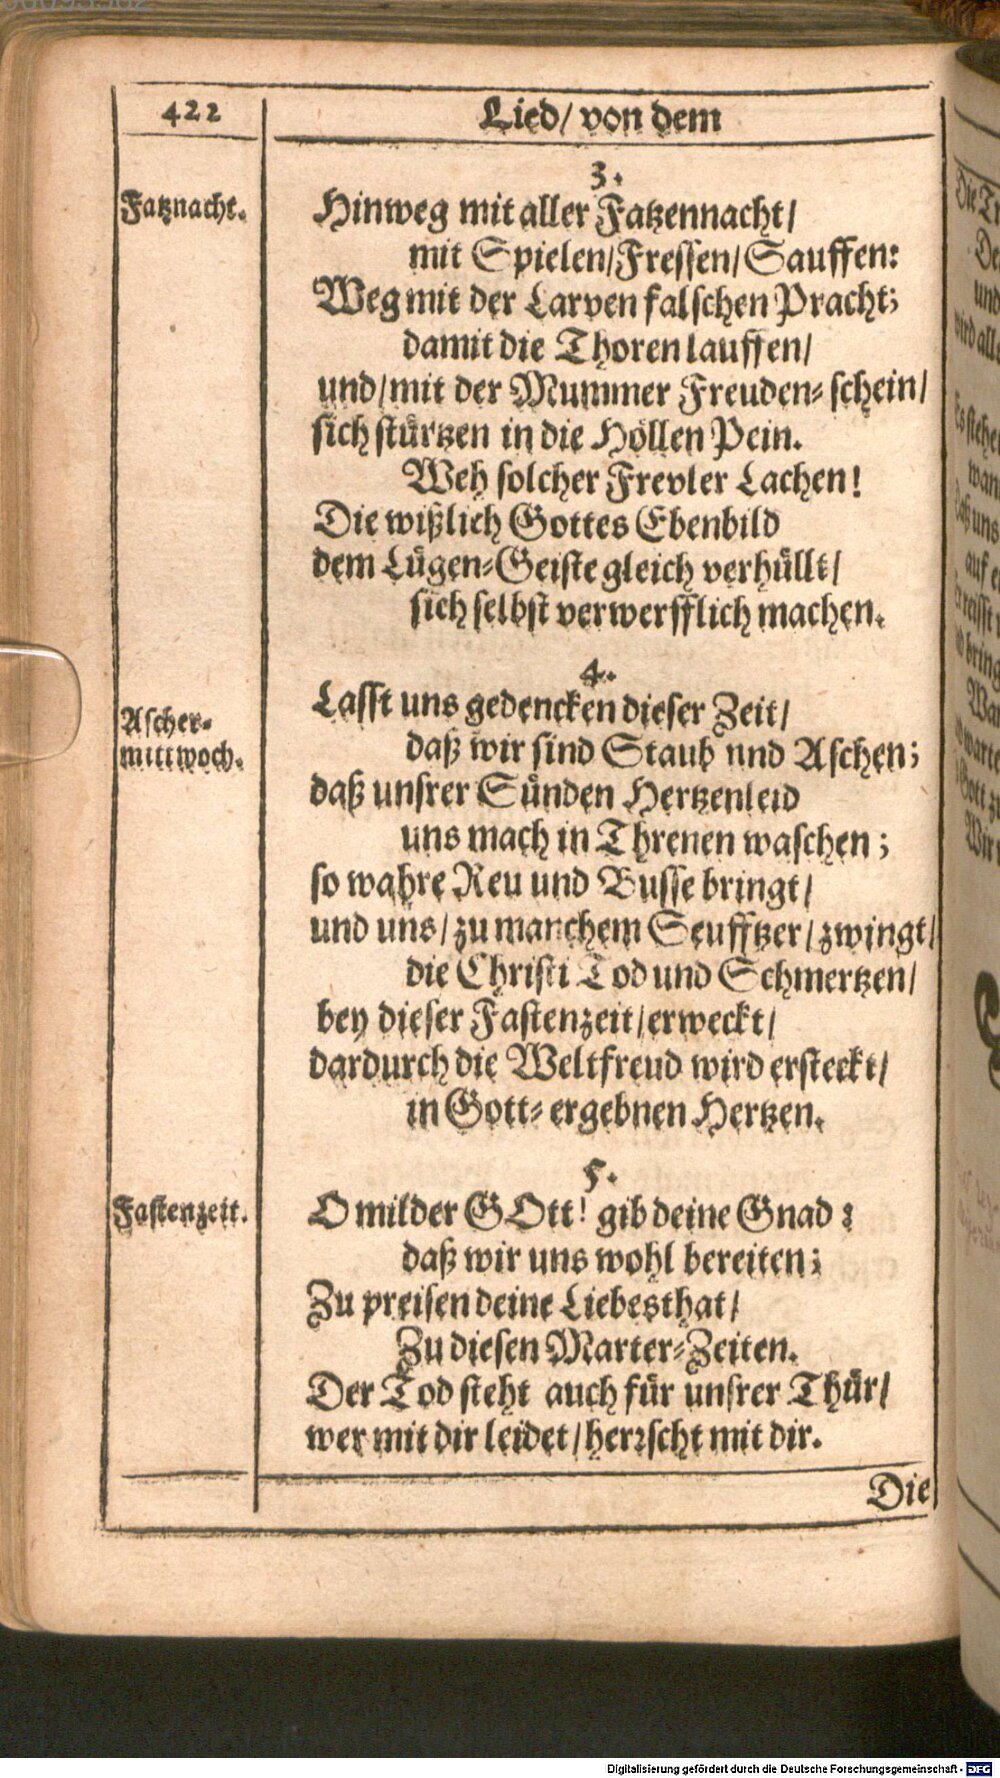 422
Lied/ von dem
3.
Fatznacht.
Hinweg mit aller Fatzennacht/
mit Spielen/Fressen/Sauffen:
Weg mit der Larven falschen Pracht;
damit die Thoren lauffen/
und/mit der Mummer Freuden-schein/
sich stürtzen in die Höllen Pein.
Weh solcher Frevler Lachen!
Die wißlich Gottes Ebenbild
dem Lügen-Geiste gleich verhüllt/
sich selbst verwerfflich machen.
4.
Ascher-
mittwoch.
Lasst uns gedencken dieser Zeit/
daß wir sind Staub und Aschen;
daß unsrer Sünden Hertzenleid
uns mach in Threnen waschen;
so wahre Reu und Busse bringt/
und uns/zu manchem Seufftzer/zwingt/
die Christi Tod und Schmertzen/
bey dieser Fastenzeit/erweckt/
dardurch die Weltfreud wird ersteckt/
in Gott-ergebnen Hertzen.
5.
Fastenzeit.
O milder GOtt! gib deine Gnad:
daß wir uns wohl bereiten;
Zu preisen deine Liebesthat/
Zu diesen Marter-Zeiten.
Der Tod steht auch für unsrer Thür/
wer mit dir leidet/herrscht mit dir.
Die
Digitalisierung gefördert durch die Deutsche Forschungsgemeinschaft - DFG